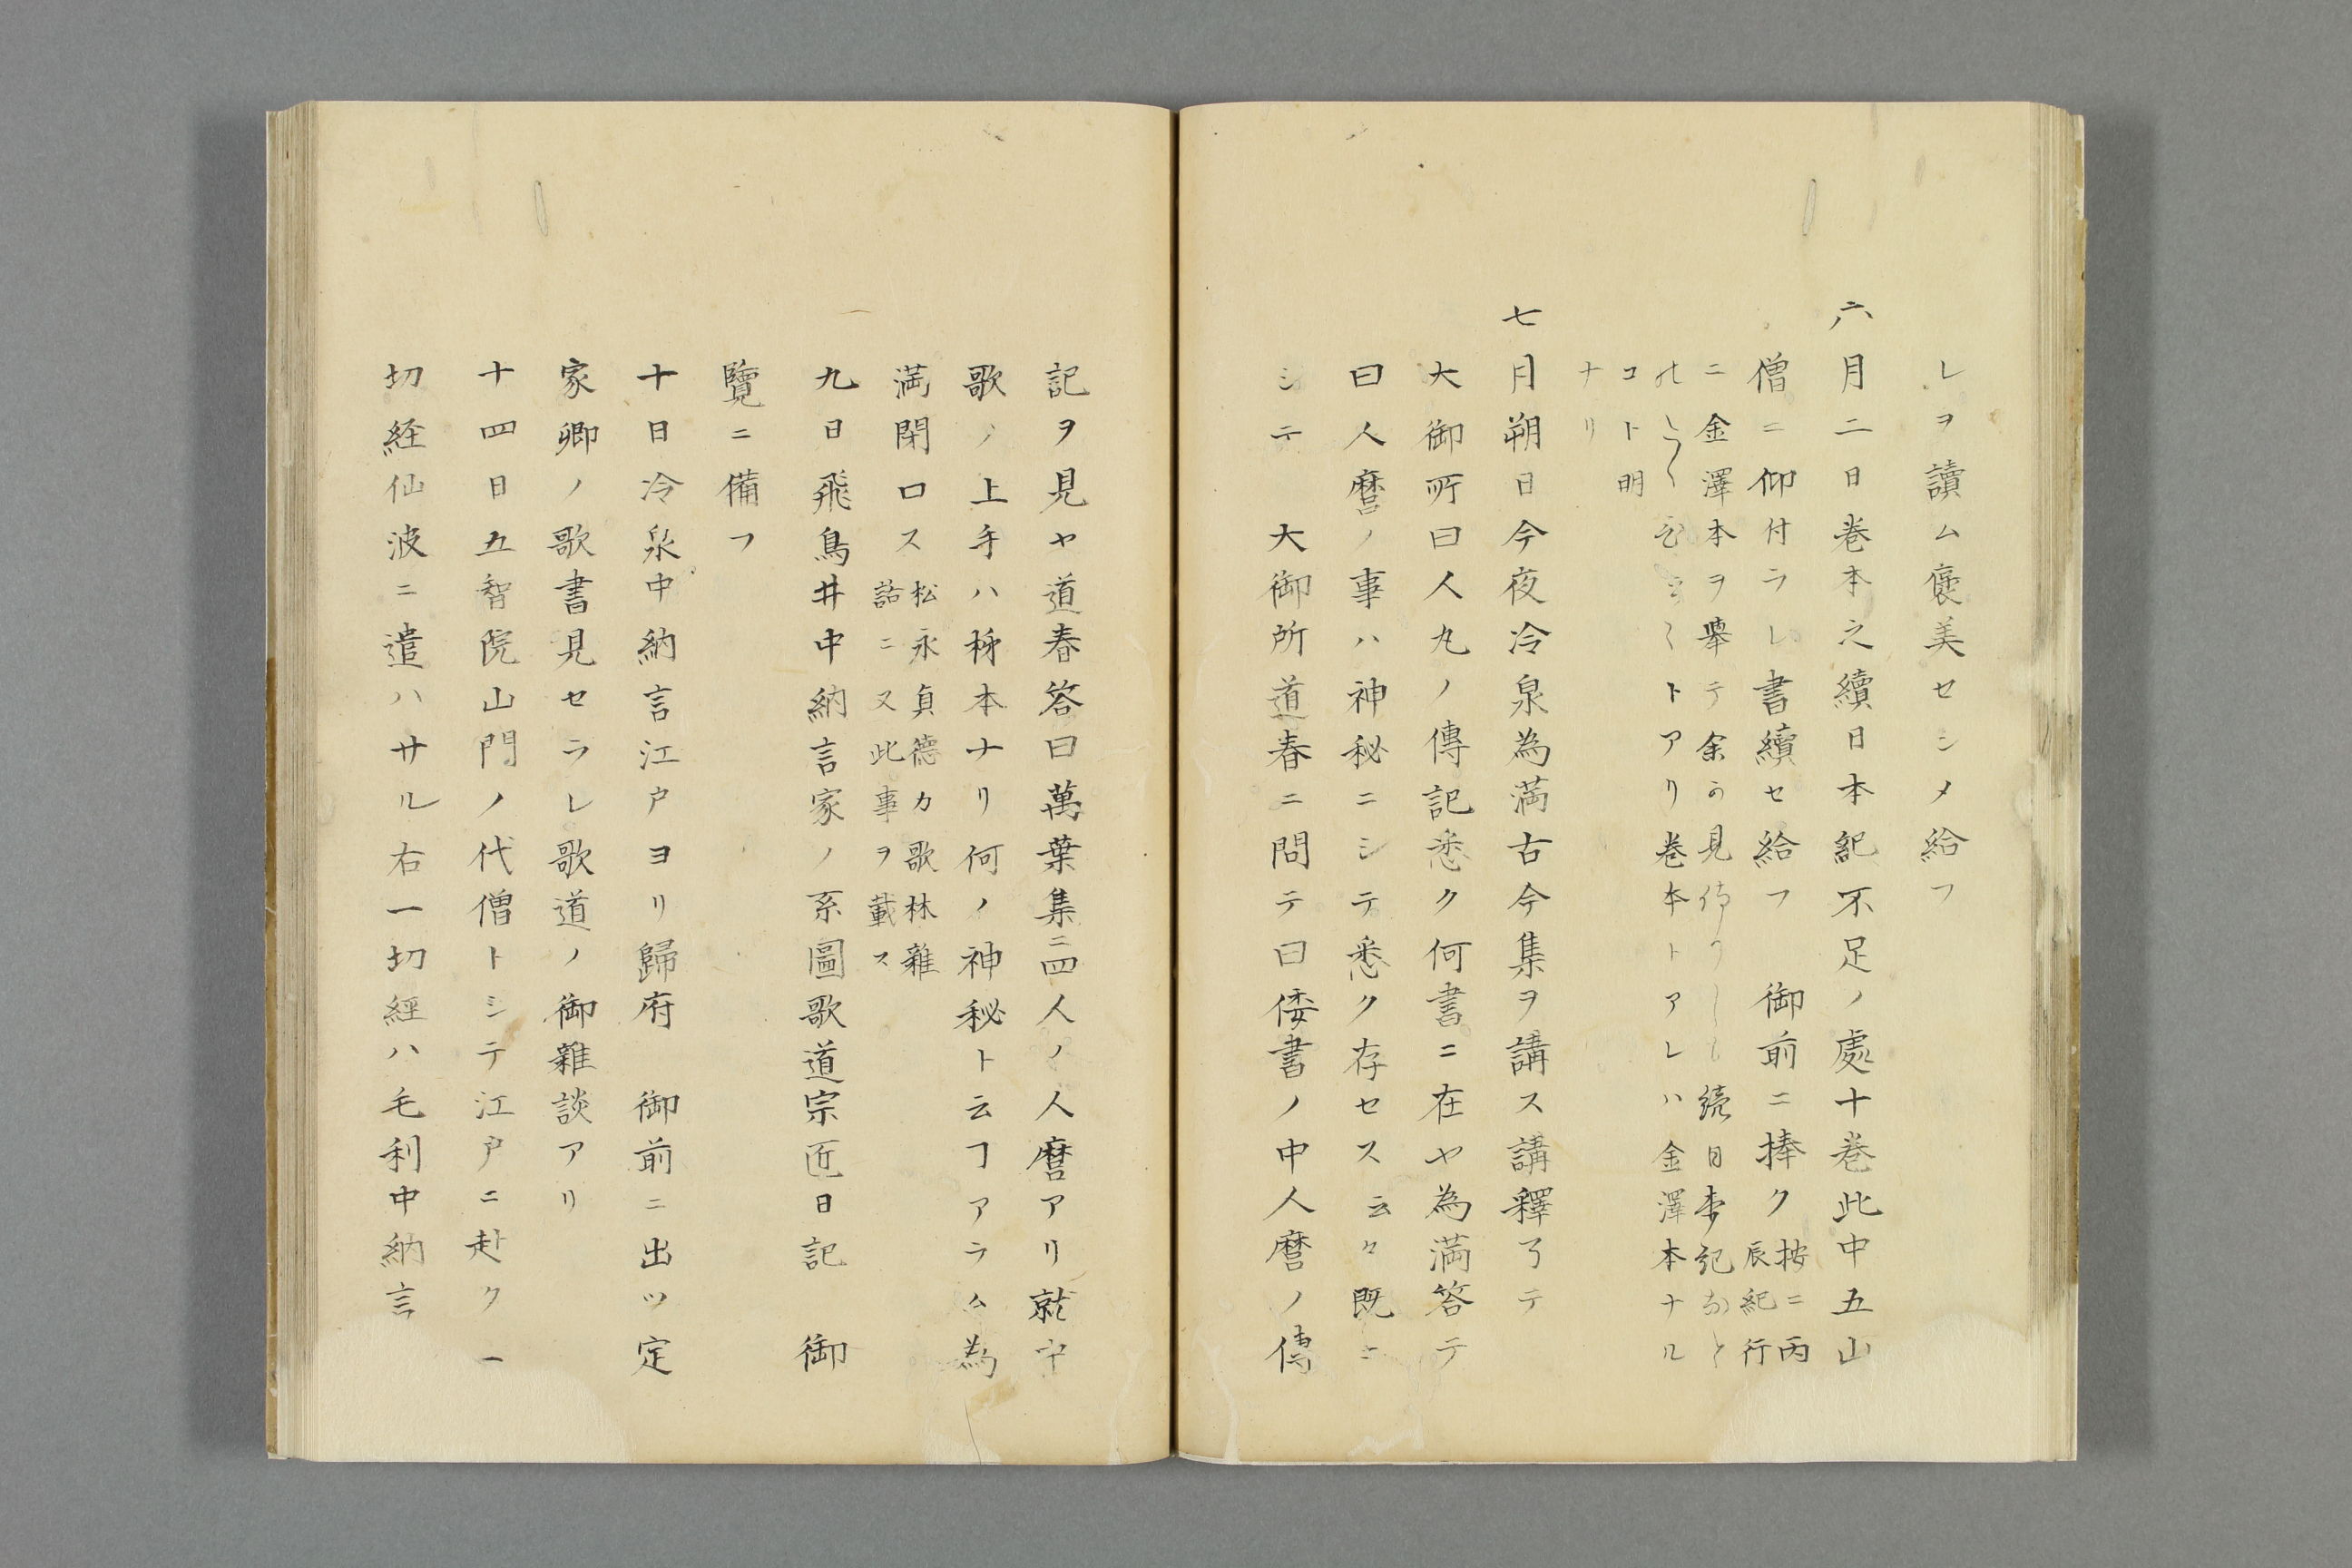 レヲ讀ム褒美セシメ給フ
六月二日巻本之續日本紀不足ノ處十巻此中五山
僧ニ仰付ラレ書續セ給フ　御前ニ捧ク
按ニ丙
辰紀行
ニ金澤本ヲ擧テ余の見侍りしも続日本紀なと
トアリ巻本トアレハ金澤本ナル
コト明
ナリ
七月朔日今夜冷泉為満古今集ヲ講ス講釋了テ
大御所曰人丸ノ傳記悉ク何書ニ在ヤ為満答テ
曰人麿ノ事ハ神秘ニシテ悉ク存セス云々既ニ
シテ　大御所道春ニ問テ曰倭書ノ中人麿ノ傳
記ヲ見ヤ道春答曰萬葉集ニ四人ノ人麿アリ就中
歌ノ上手ハ柹本ナリ何ノ神秘ト云ヿアラム為
満閉口ス
松永貞德カ歌林雜
話ニ又此事ヲ載ス
九日飛鳥井中納言家ノ系圖歌道宗匠日記　御
覽ニ備フ
十日冷泉中納言江戸ヨリ歸府　御前ニ出ツ定
家卿ノ歌書見セラレ歌道ノ御雜談アリ
十四日五智院山門ノ代僧トシテ江戸ニ赴ク一
切経仙波ニ遣ハサル右一切經ハ毛利中納言